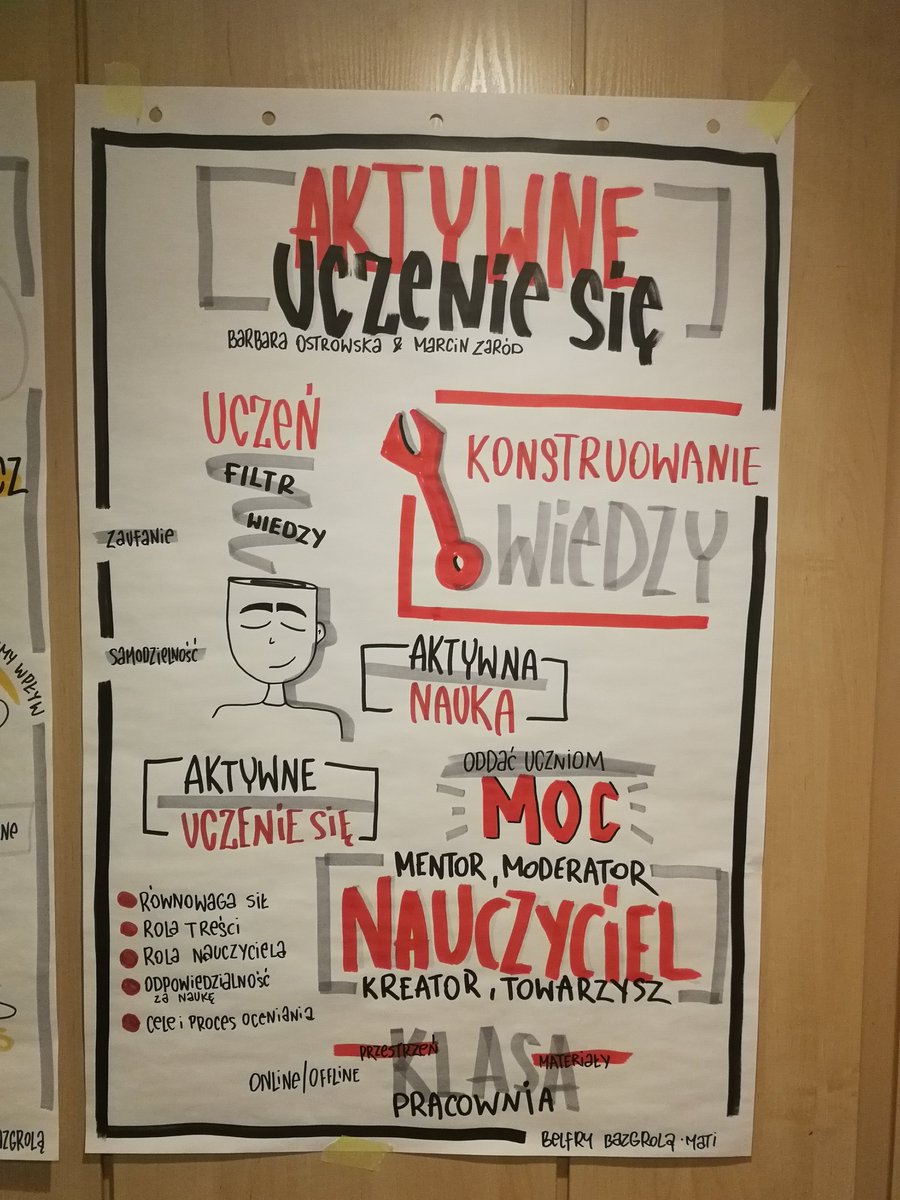 AKTYWNE
UCZENIE SIĘ
BARBARA OSTROWSKA & MARCIN ZARÓD
UCZEŃ
FILTR
WIEDZY
KONSTRUOWANIE
WIEDZY
ZAUFANIE
SAMODZIELNOŚĆ
AKTYWNA
NAUKA
AKTYWNE
UCZENIE SIĘ
ODDAĆ UCZNIOM
MOC
MENTOR, MODERATOR
NAUCZYCIEL
KREATOR, TOWARZYSZ
RÓWNOWAGA SIŁ
ROLA TREŚCI
ROLA NAUCZYCIELA
ODPOWIEDZIALNOŚĆ
ZA NAUKĘ
CELE I PROCES OCENIANIA
PRZESTRZEŃ
KLASA
MATERIAŁY
ONLINE/OFFLINE
PRACOWNIA
BELFRY BAZGROLĄ · MATI
CZ
MY WPŁYW
NE
AZGROLĄ